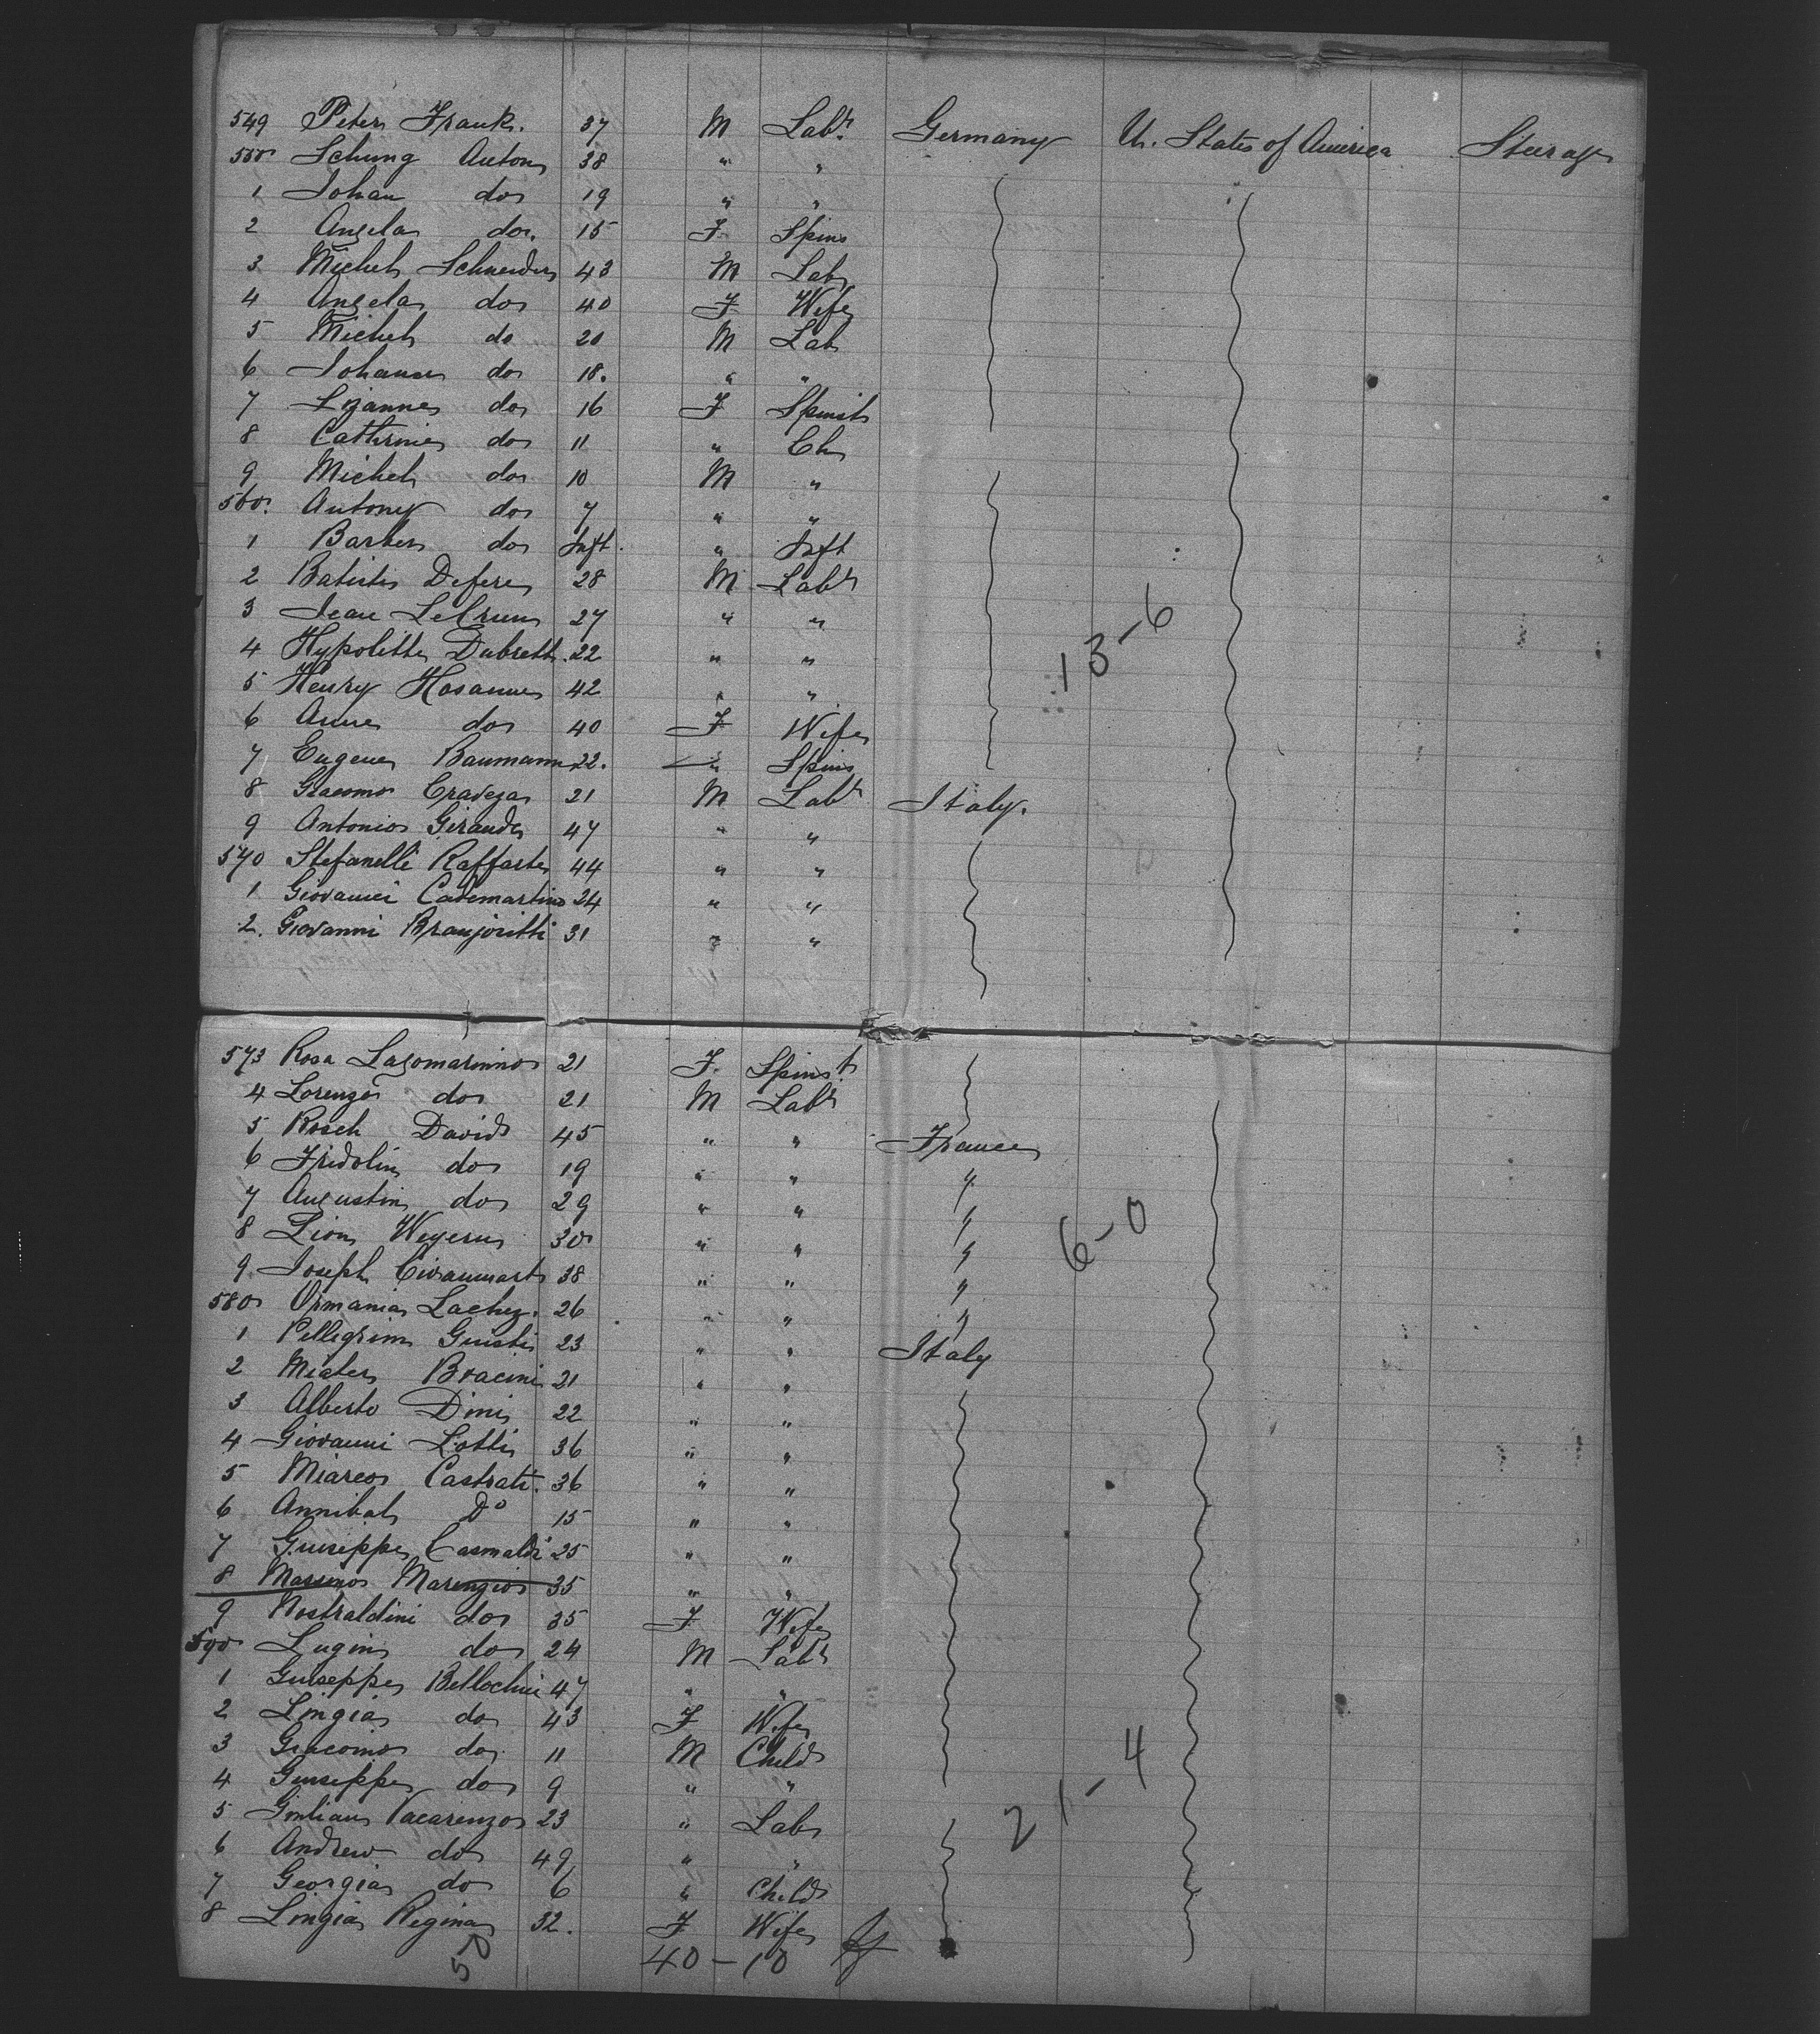 549 Peter Frank. 37 M Labr. Germany Un. States of America Steerage
550 Schung Anton 38 " "
1 Johan do 19 " "
2 Angela do. 15 F Spins
3 Michel Schneider 43 M Lab
4 Angela do 40 F Wife
5 Michel do 20 M Lab
6 Johann do 18. " "
7 do 16 F Spinst
8 Cathrine do 11 " Ch
9 Michel do 10 M "
560. Antony do 7 " "
1 Barber do Inft. " Inft
2 Batiste Defere 28 M Labr
3 Jean LeCrum 27 " "
4 Hypolitte Dubrett. 22 " "
13-6
5 Henry Hosanne 42 " "
6 Anne do 40 F Wife
7 Eugene Baumann 22. " Spins
8 Giacomo Cravega 21 M Labr Italy.
9 Antonio Girando 47 " "
570 Stefanelli Raffaste 44 " "
1 Giovanni Cademartino 24 " "
2. Giovanni 31 " "
573 Rosa Lagomarinno 21 F. Spinst
4 Lorenzo do 21 M Labr
5 Rosch David 45 " " France
6 Fridolin do 19 " " "
7 Augustin do 29 " " "
8 Lion Weyerus 30 " " "
6-0
9 Joseph 38 " " "
580 Ormania Lachez. 26 " " "
1 Pellegrim Guisti 23 " " Italy
2 Bracini 21 " "
3 Alberto Dini 22 " "
4 Giovanni Lotti 36 " "
5 Miarco Castrati. 36 " "
6 Annibal Do 15 " "
7 Guiseppe Casmaldi 25 " "
8 Massimo Marengio 35 " "
9 Nostraldini do 35 F Wife
590 Lugin do 24 M Labr
1 Guiseppe Bellochini 47 " "
2 Lingia do 43 F Wife
3 Giacomo do 11 M Child
4 Guiseppe do 9 " "
21-4
5 Giulian Vacarenzo 23 " Lab
6 Andrew do 49 " "
7 Georgia do 6 " Child
8 Lingia Regina 32. F Wife
50 40-10